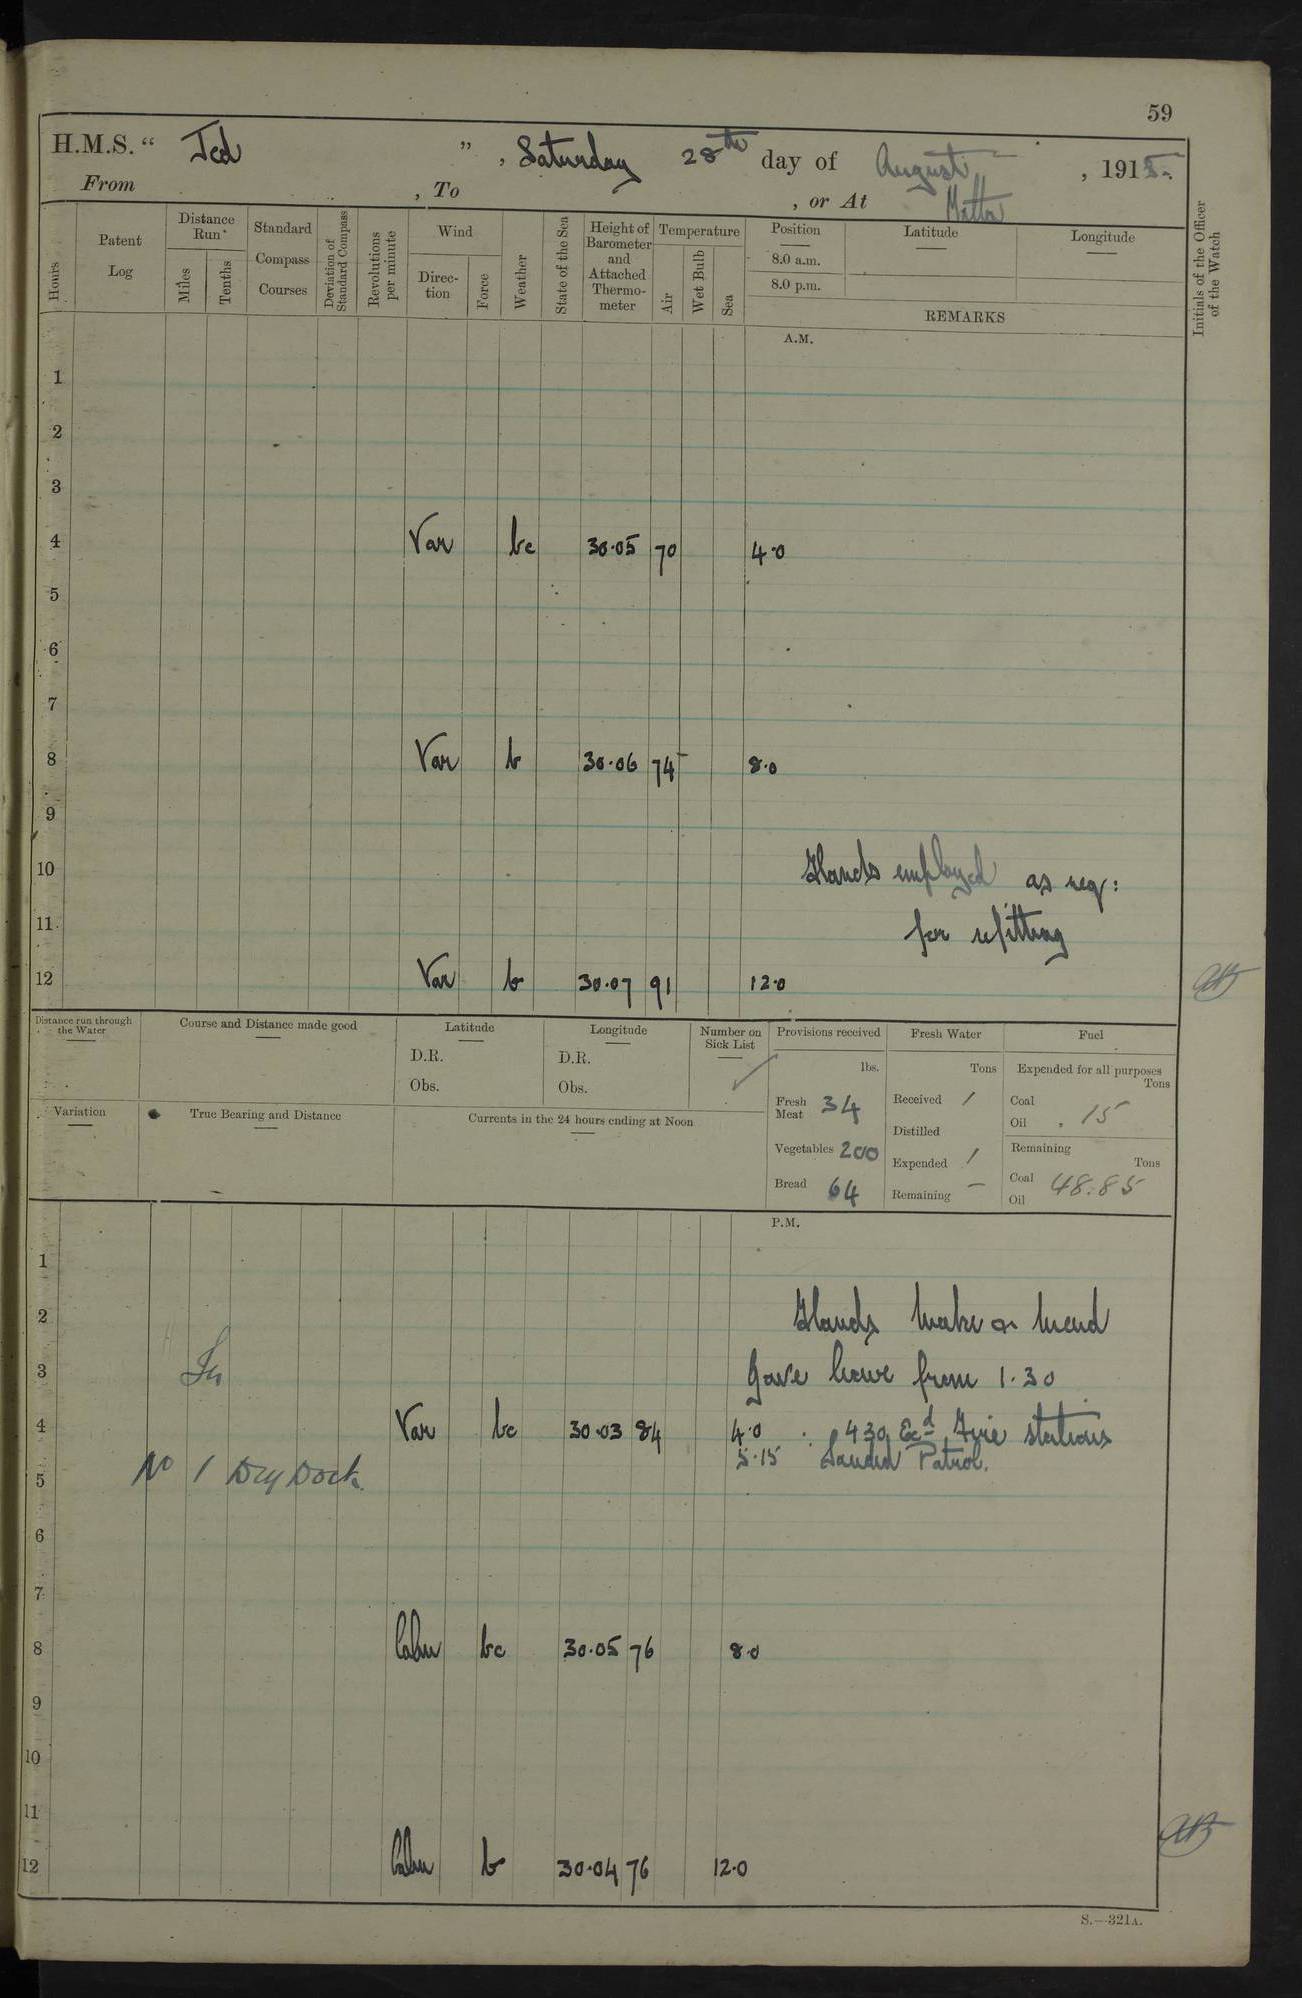 59
H.M.S. " Jed ", Saturday 28th day of August, 1915.
From , To , or At Malta
Hours
Patent Log
Distance Run
Miles
Tenths
Standard Compass Courses
Deviation of Standard Compass
Revolutions per minute
Wind
Direction
Force
Weather
State of the Sea
Height of Barometer and Attached Thermometer
Temperature
Air
Wet Bulb
Sea
Position
8.0 a.m.
8.0 p.m.
Latitude
Longitude
REMARKS
Initials of the Officer of the Watch
A.M.
1
2
3
4 Var bc 30.05 70 4.0
5
6
7
8 Var b 30.06 74 8.0
9
10 Hands employed as req:
11 for refitting
12 Var b 30.07 91 12.0
Distance run through the Water
Course and Distance made good
Latitude
D.R.
Obs.
Longitude
D.R.
Obs.
Number on Sick List
Provisions received
lbs.
Fresh Meat 34
Vegetables 200
Bread 64
Fresh Water
Tons
Received 1
Distilled
Expended 1
Remaining -
Fuel
Expended for all purposes
Tons
Coal
Oil .15
Remaining
Tons
Coal
Oil 48.85
Variation
True Bearing and Distance
Currents in the 24 hours ending at Noon
P.M.
1
2 Hands make or mend
3 In Gave leave from 1.30
4 Var bc 30.03 84 4.0 : 430 Exd Fire stations
5.15 Landed Patrol.
5 No 1 Dry Dock.
6
7
8 Calm bc 30.05 76 8.0
9
10
11
12 Calm b 30.04 76 12.0
S.—321A.